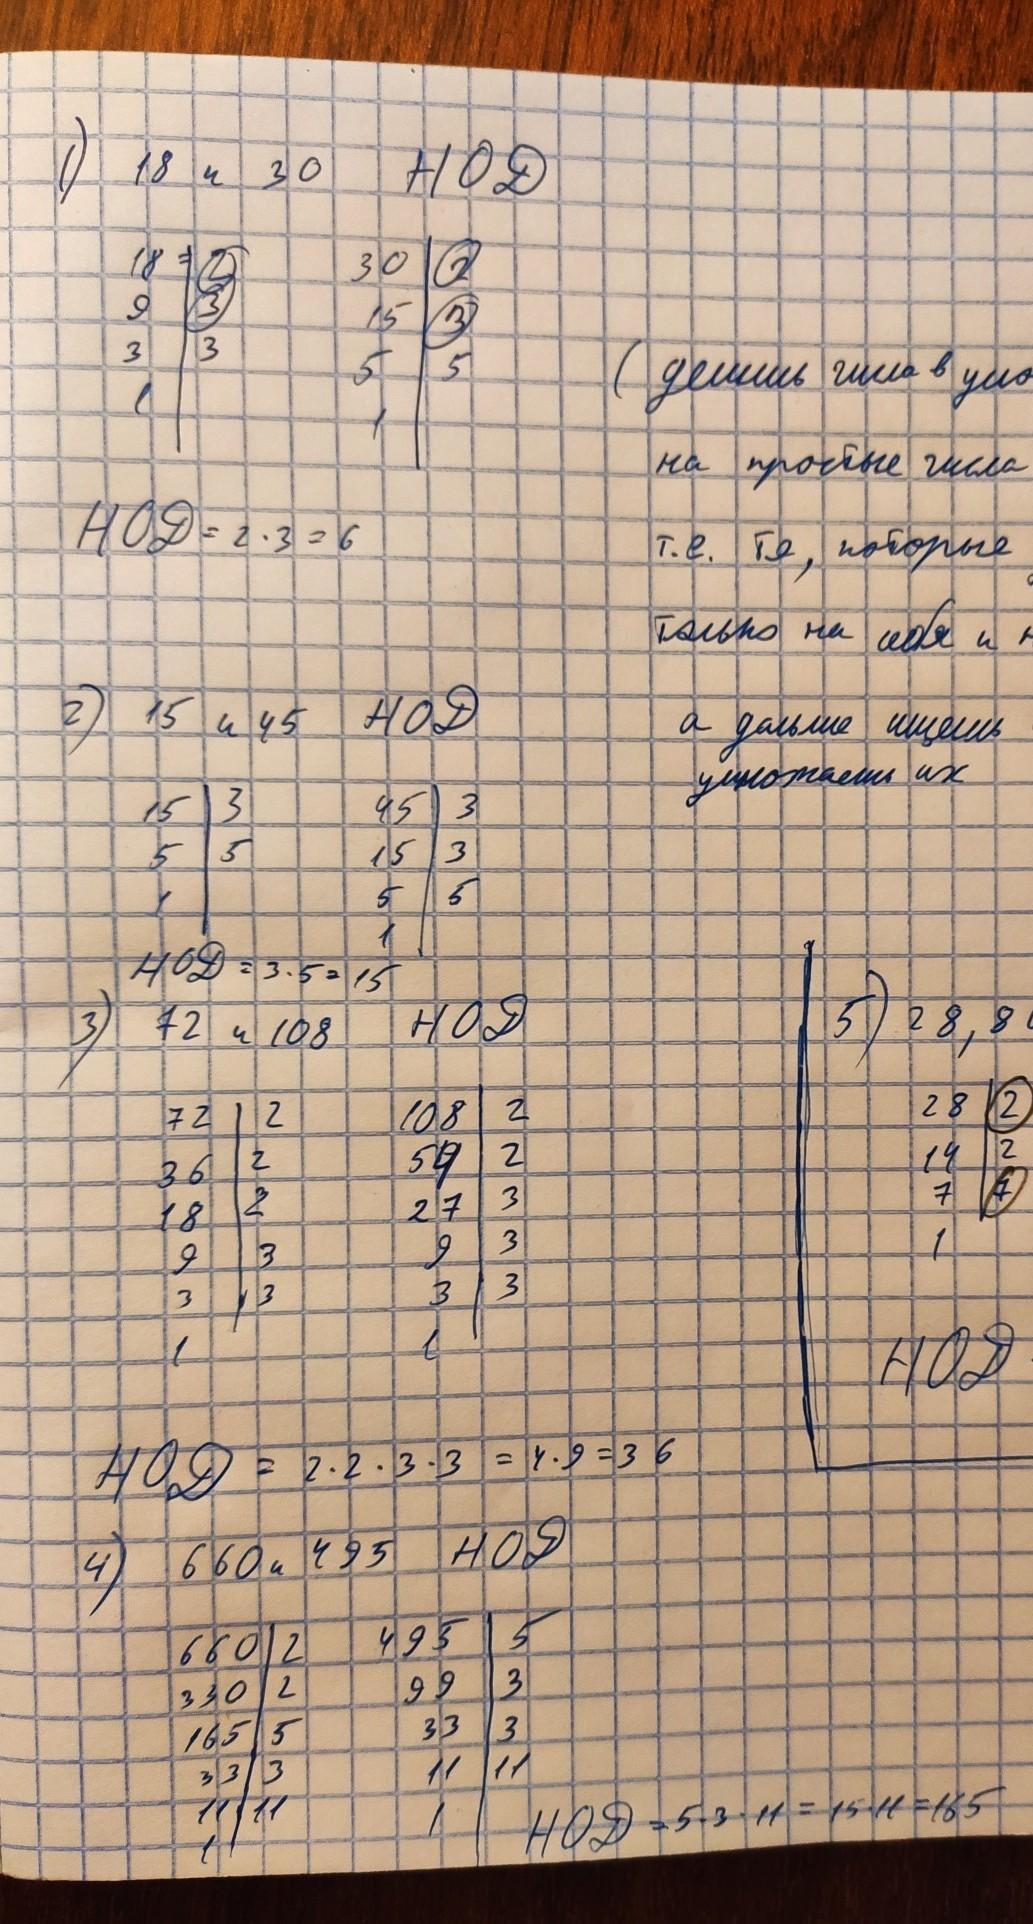 1) 18 и 30 НОД
18 2 30 2
9 3 15 3
3 3 5 5
1 1
НОД = 2 · 3 = 6
( делишь числа в
на простые числа
т.е. те, которые
только на себя и
а дальше ищешь
умножаешь их
2) 15 и 45 НОД
15 3 45 3
5 5 15 3
1 5 5
1
НОД = 3 · 5 = 15
3) 72 и 108 НОД
72 2 108 2
36 2 54 2
18 2 27 3
9 3 9 3
3 3 3 3
1 1
НОД = 2 · 2 · 3 · 3 = 4 · 9 = 36
5) 28, 8
28 2
14 2
7 7
1
НОД
4) 660 и 495 НОД
660 2 495 5
330 2 99 3
165 5 33 3
33 3 11 11
11 11 1
1
НОД = 5 · 3 · 11 = 15 · 11 = 165